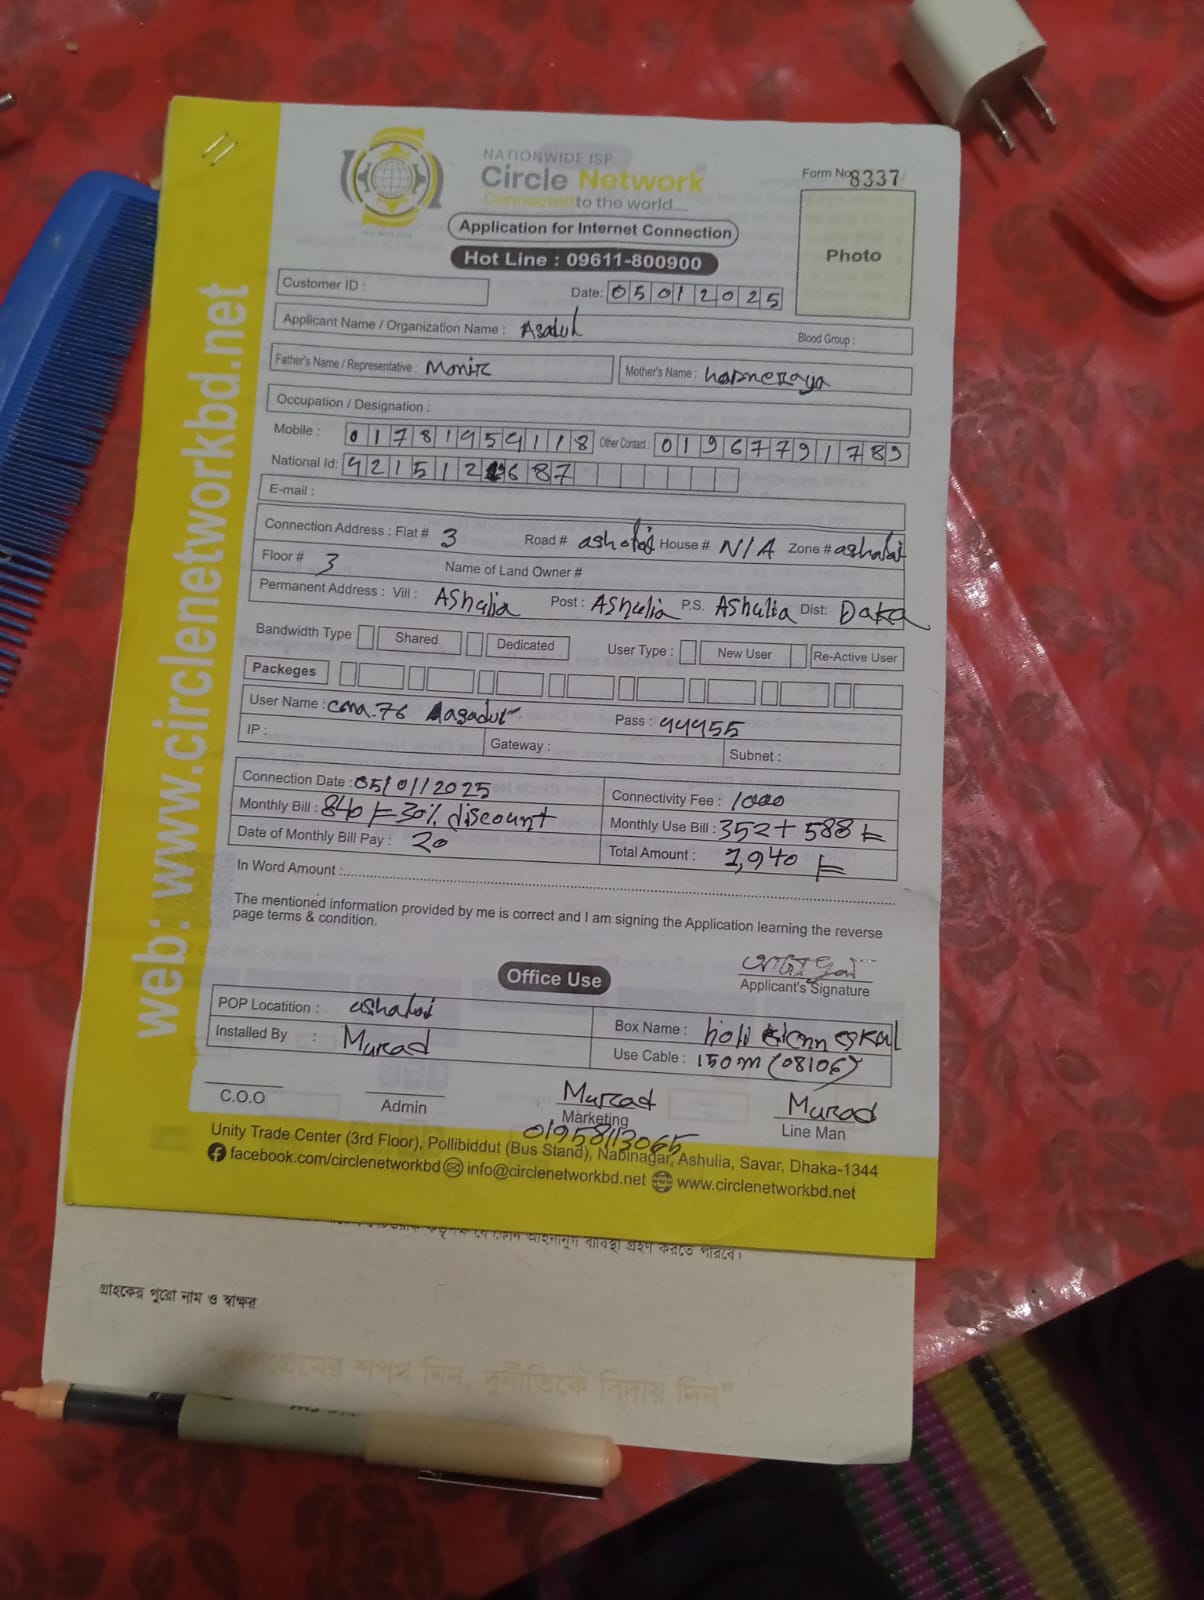 NATIONWIDE ISP
Circle Network
Connected to the world....
Form No 8337
Application for Internet Connection
Hot Line : 09611-800900
Photo
Customer ID :
Date: 05012025
Applicant Name / Organization Name : Asadul
Blood Group :
Father's Name / Representative : Monir
Mother's Name :
Occupation / Designation :
Mobile : 01781959118 Other Contact : 01967791789
National Id:
E-mail :
Connection Address : Flat # 3 Road # House # N/A Zone #
Floor # 3 Name of Land Owner #
Permanent Address : Vill : AShulia Post : AShulia P.S. AShulia Dist: Daka
Bandwidth Type Shared Dedicated User Type : New User Re-Active User
Packeges
User Name : cna.76 Pass : 44455
IP : Gateway : Subnet :
Connection Date : 05/01/2025 Connectivity Fee : 1000
Monthly Bill : 840 30% discount Monthly Use Bill : 352+ 588
Date of Monthly Bill Pay : 20 Total Amount : 1,940
In Word Amount :
The mentioned information provided by me is correct and I am signing the Application learning the reverse
page terms & condition.
Applicant's Signature
Office Use
POP Locatition : Box Name :
Installed By : Murad Use Cable : 150m (08106)
Murad Murad
C.O.O Admin Marketing Line Man
01958113065
Unity Trade Center (3rd Floor), Pollibiddut (Bus Stand), Nabinagar, Ashulia, Savar, Dhaka-1344
facebook.com/circlenetworkbd info@circlenetworkbd.net www.circlenetworkbd.net
web: www.circlenetworkbd.net
ব্যবস্থা গ্রহণ করতে পারবে।
গ্রাহকের পুরো নাম ও স্বাক্ষর
"দেশপ্রেমের শপথ নিন, দুর্নীতিকে বিদায় দিন"